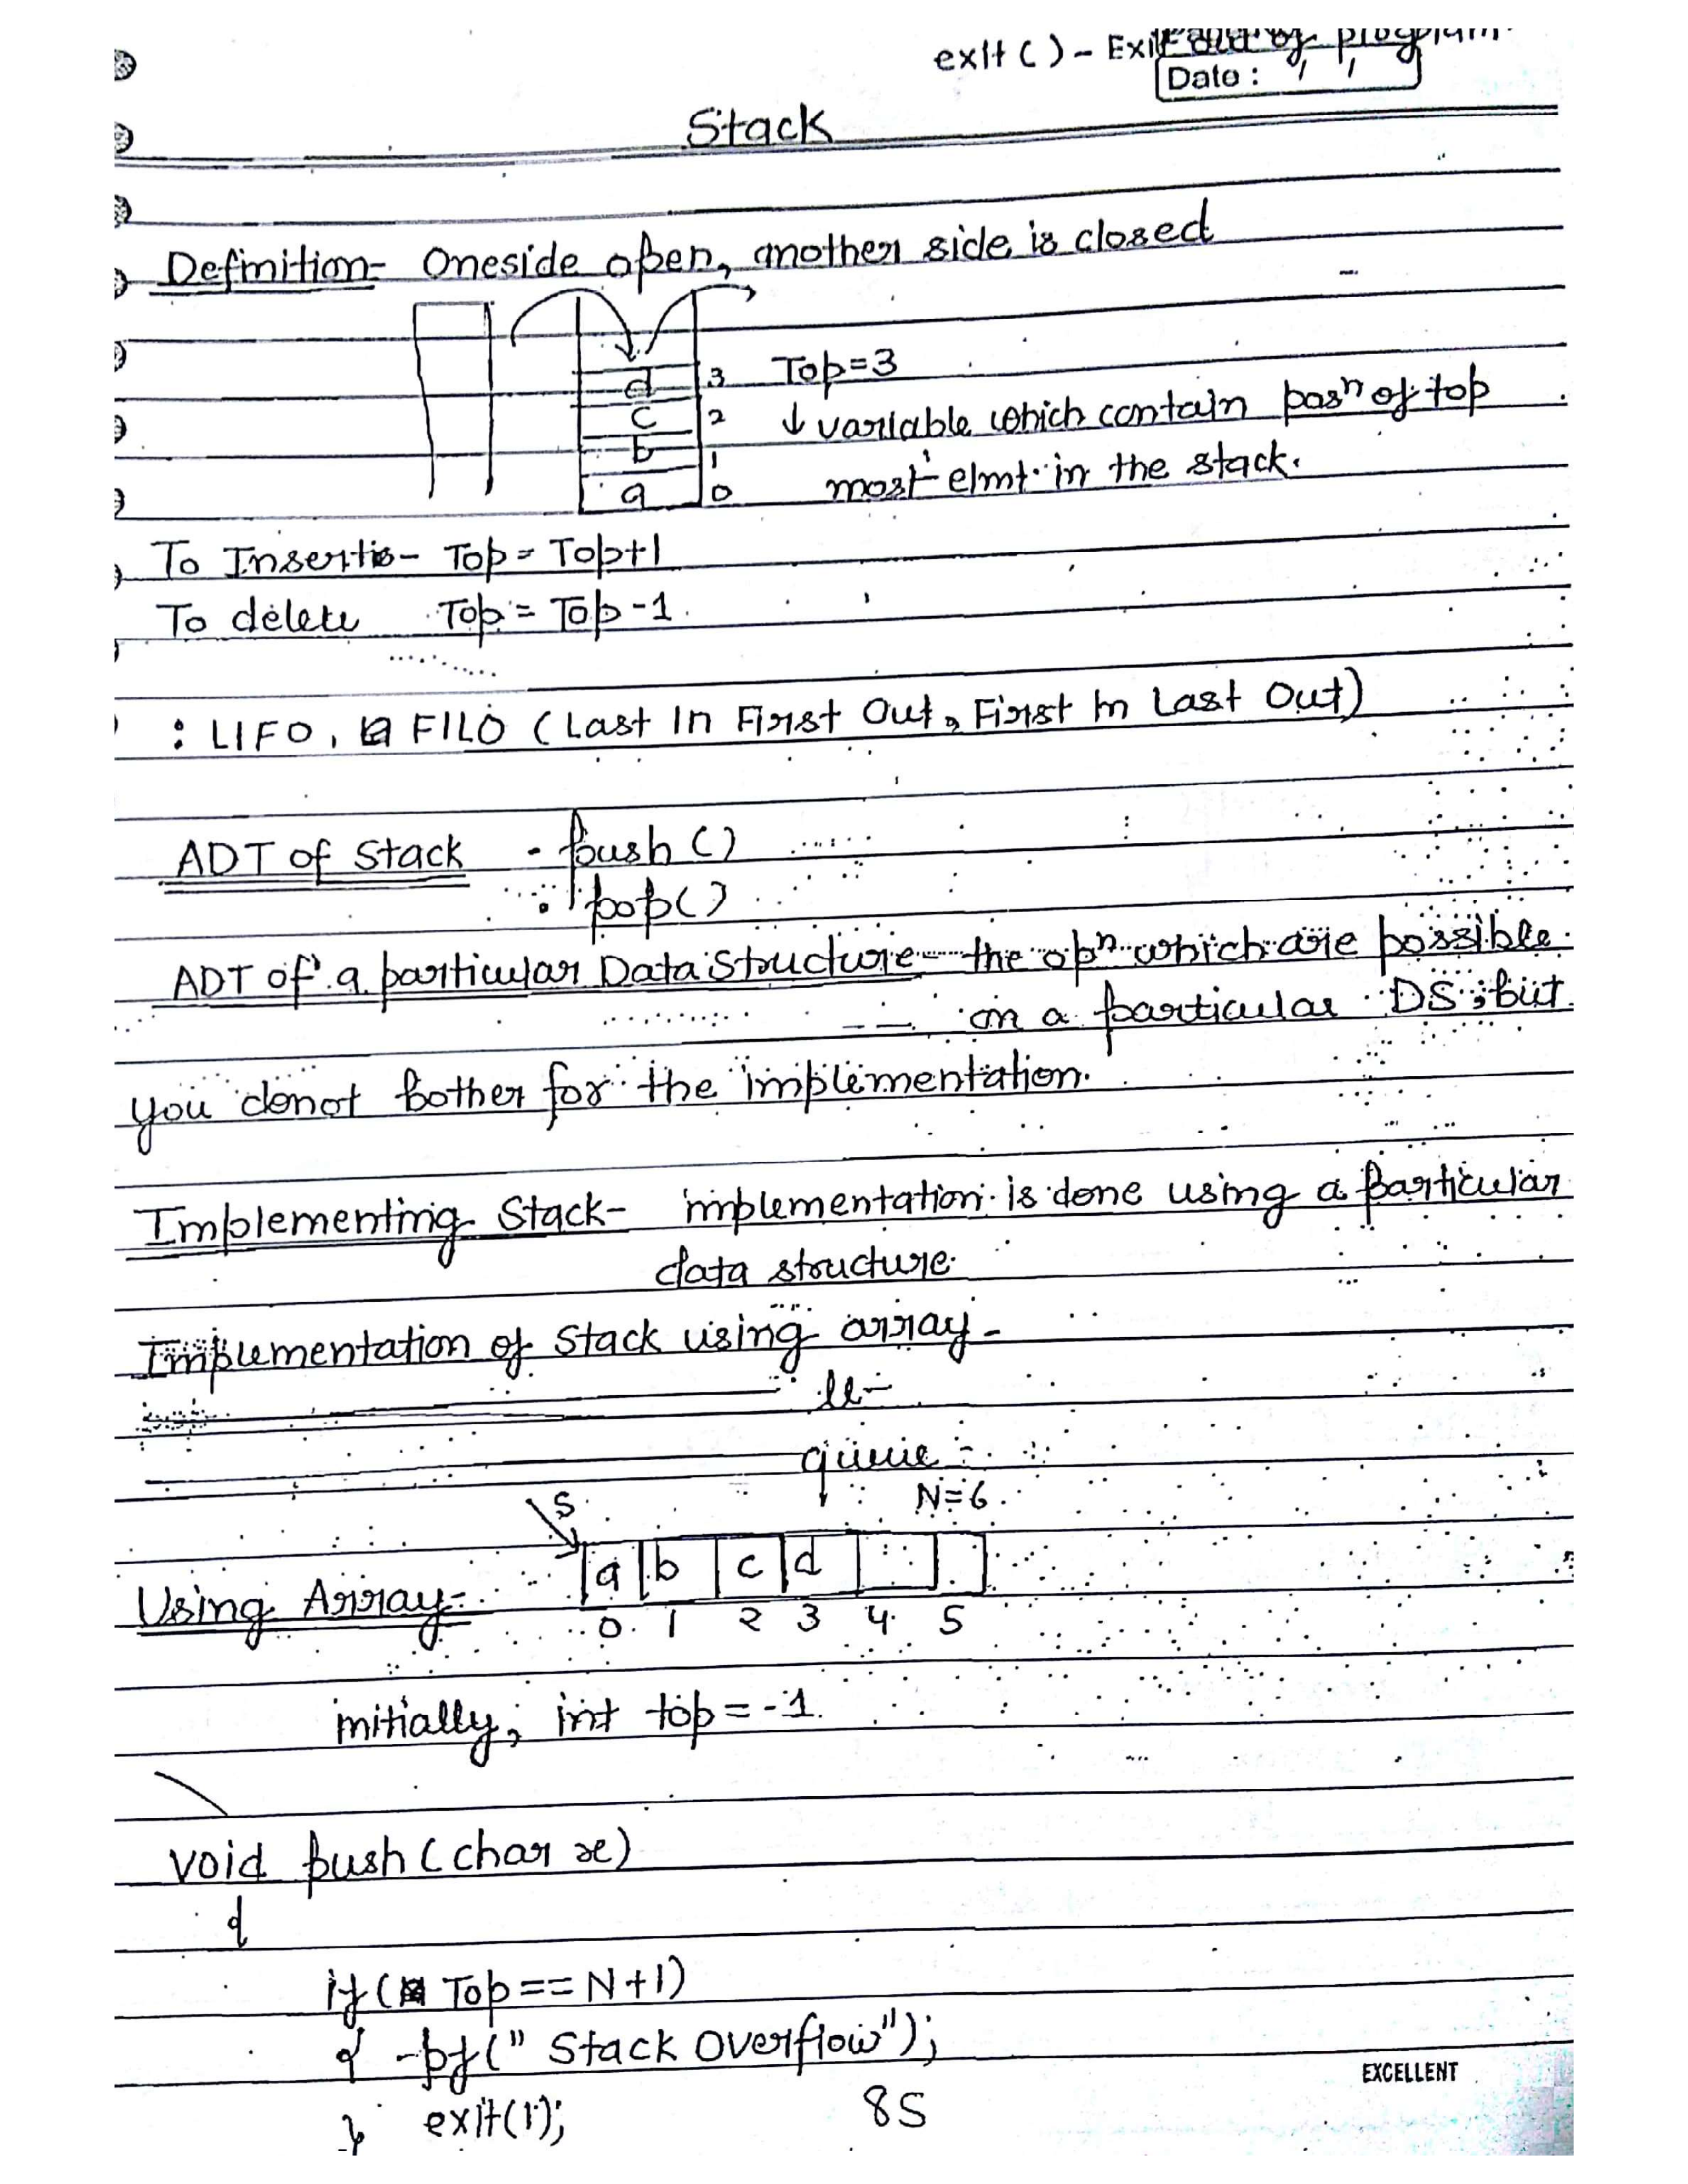 exit ( ) - Exit out of program.
Date : / /
Stack
Definition- Oneside open, another side is closed
d 3 Top=3
c 2 ↓ variable which contain posn of top
b 1
a 0 most elmt. in the stack.
To Insertio- Top = Top+1
To delete Top = Top-1.
: LIFO, FILO (Last In First Out, First In Last Out)
ADT of Stack - push ( )
: pop( )
ADT of a particular Data Structure- the opn which are possible
on a particular DS, but
you donot bother for the implementation.
Implementing Stack- implementation is done using a particular
data structure.
Implementation of Stack using array-
ll-
queue -
S N=6
a b c d
Using Array-
0 1 2 3 4 5
initially, int top = -1.
void push (char x)
{
if ( Top == N+1)
{ pf(" Stack Overflow");
} exit(1);
85
EXCELLENT